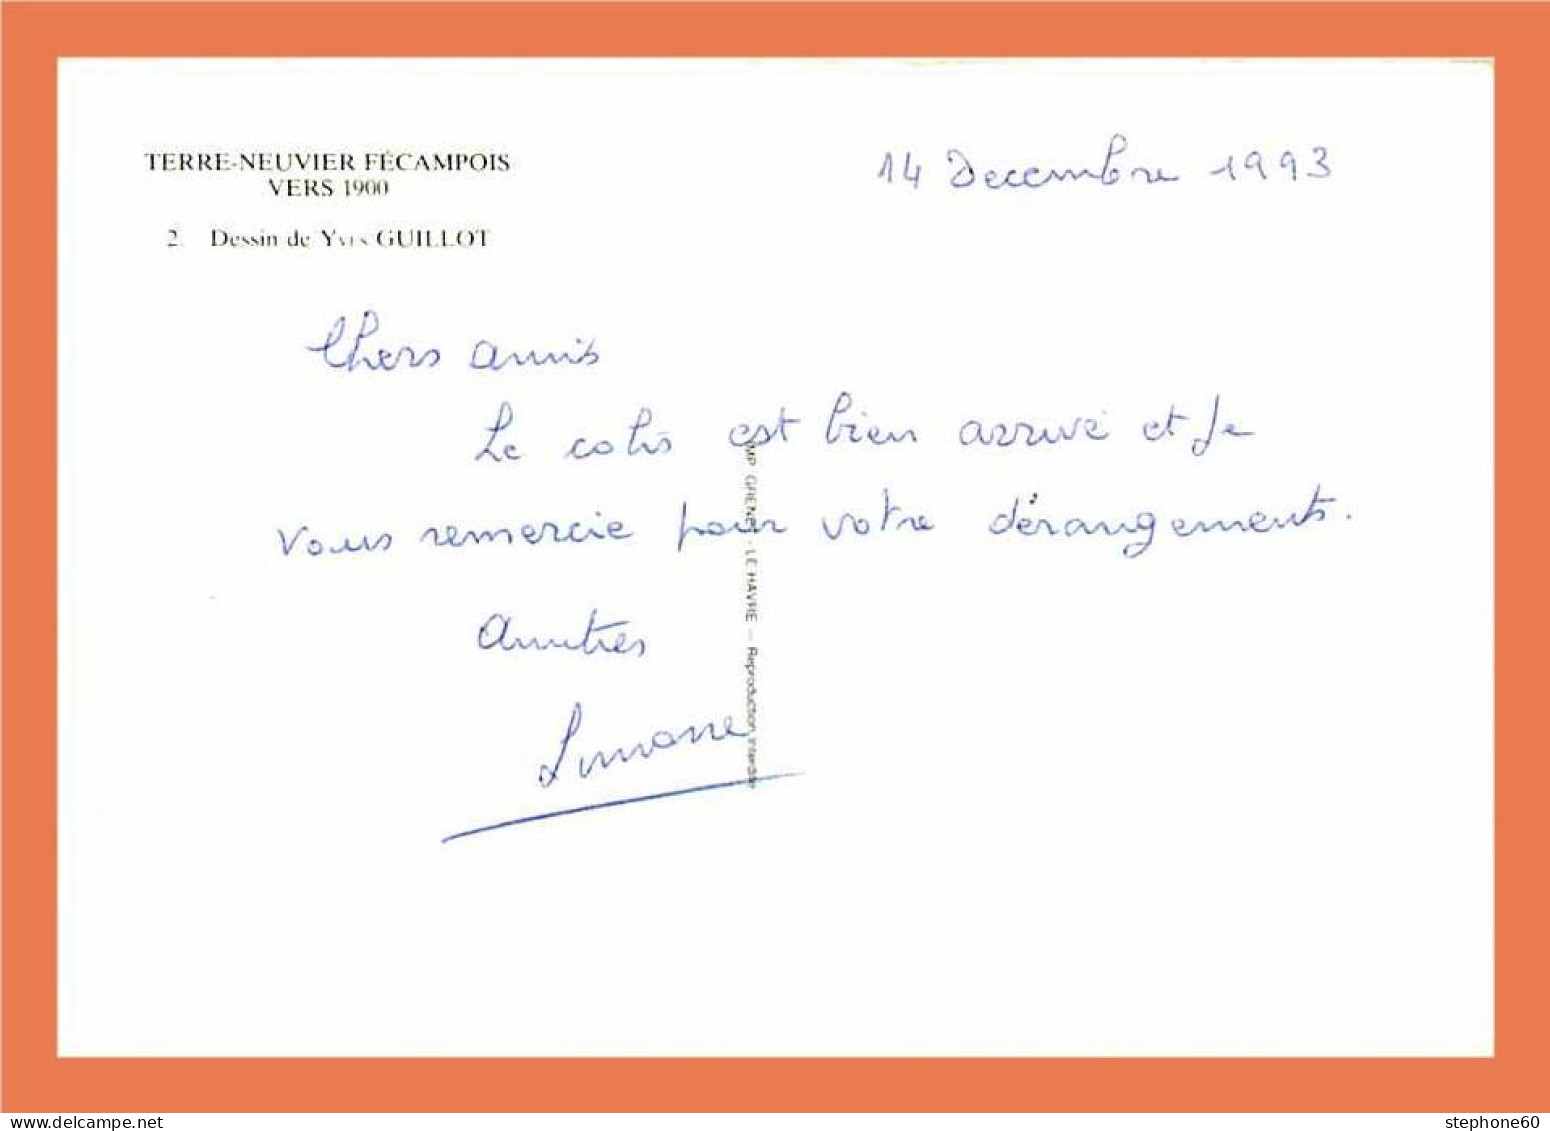 TERRE-NEUVIER FÉCAMPOIS
VERS 1900
2. Dessin de Yves GUILLOT
14 Decembre 1993
Chers amis
Le colis est bien arrivé et je
vous remercie pour votre dérangements.
Amitiés
Simone
IMP. GRENET - LE HAVRE — Reproduction interdite
stephone60